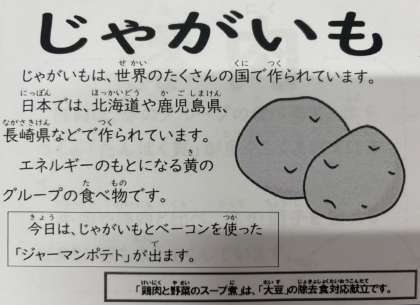 じゃがいも
じゃがいもは、世界のたくさんの国で作られています。
日本では、北海道や鹿児島県、
長崎県などで作られています。
エネルギーのもとになる黄の
グループの食べ物です。
今日は、じゃがいもとベーコンを使った
「ジャーマンポテト」が出ます。
「鶏肉と野菜のスープ煮」は、「大豆」の除去食対応献立です。